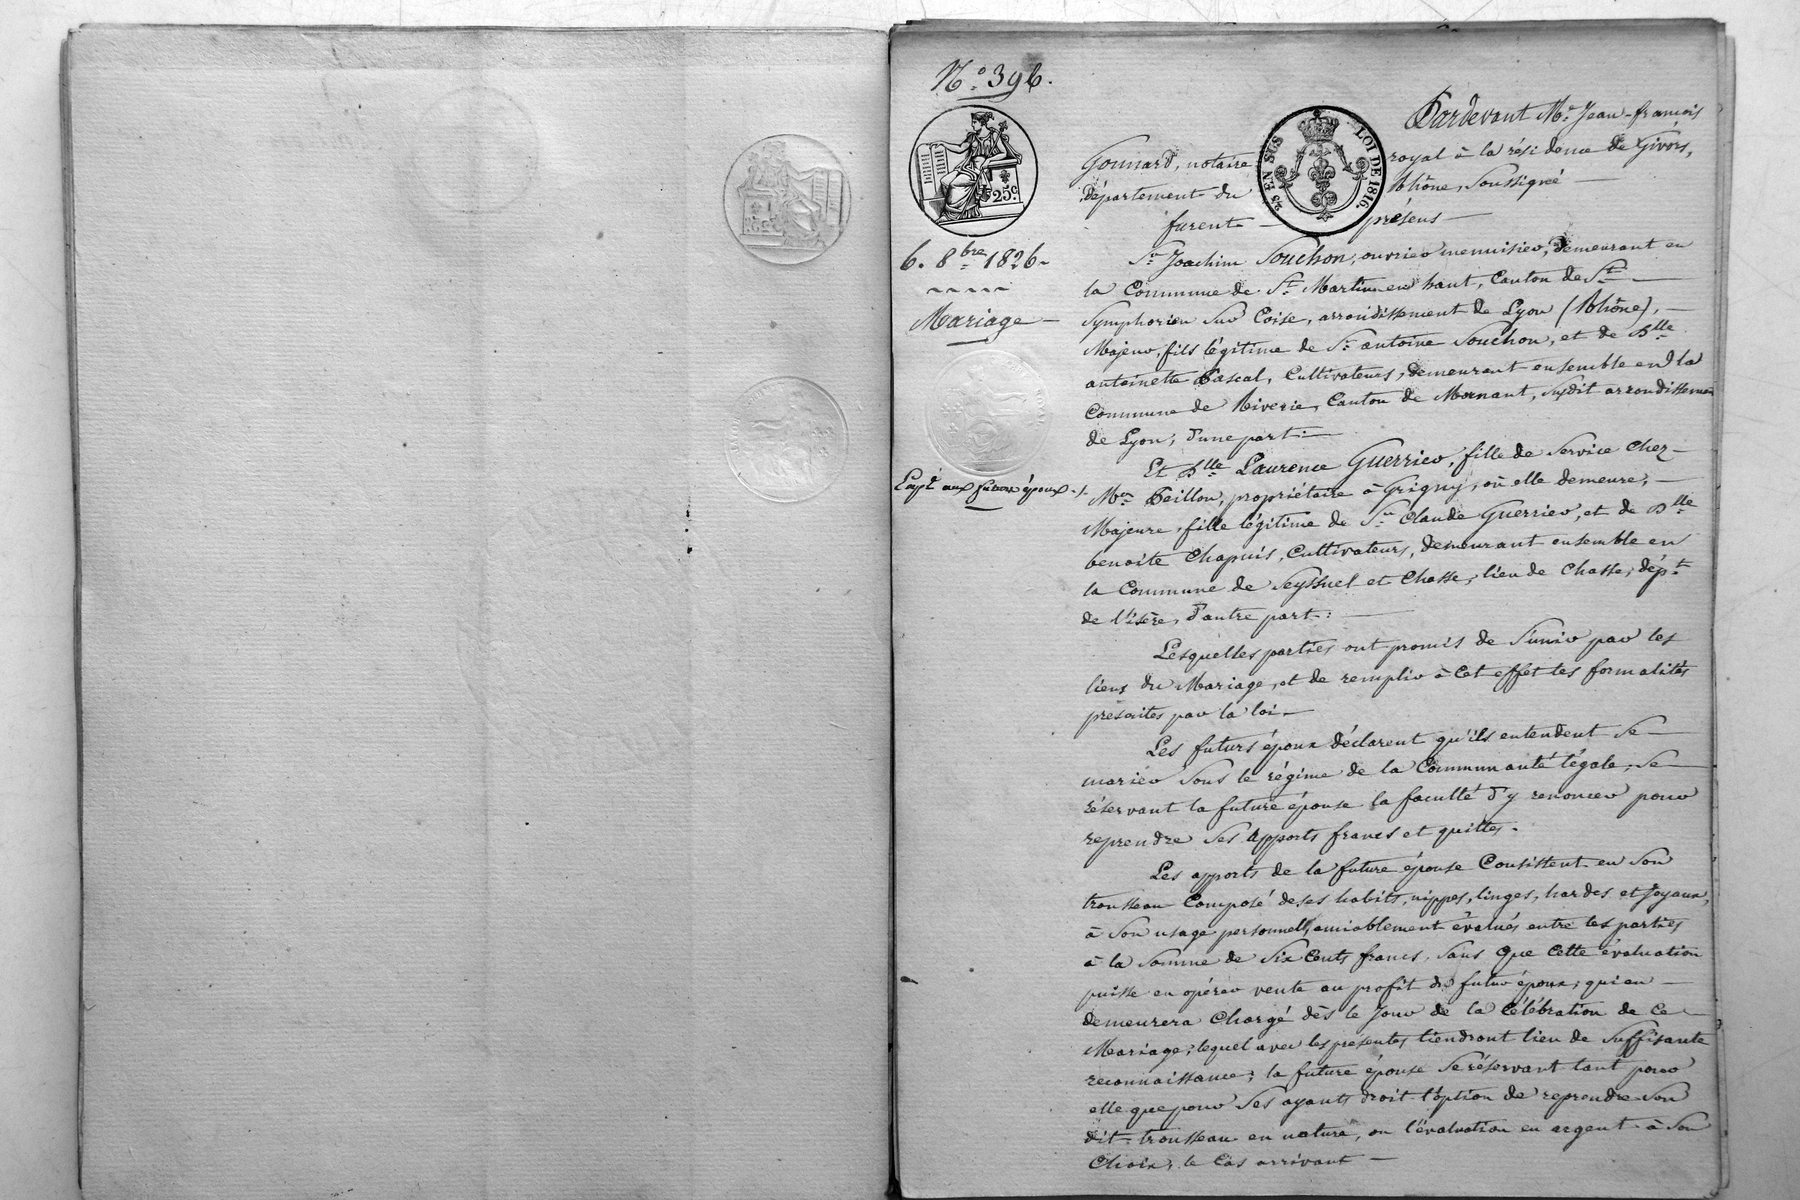 N.° 396.
25 EN SUS LOI DE 1816.
25 c.
6. 8.bre 1826.
Mariage
Exp.é aux futurs époux
Pardevant M.e Jean-françois
Gonnard, notaire royal à la résidence de Givors,
Département du Rhône, Soussigné
furent présens
S.r Joachim Souchon, ouvrier menuisier, demeurant en
la Commune de S.t Martin en haut, Canton de S.t
Symphorien Sur Coise, arrondissement de Lyon (Rhône),
Majeur, fils légitime de S.r antoine Souchon, et de D.lle
antoinette Pascal, Cultivateurs, demeurant ensemble en la
Commune de Riverie, Canton de Mornant, Susdit arrondissement
de Lyon, d'une part:
Et D.lle Laurence Guerrier, fille de Service chez
M.r Peillon, propriétaire à Grigny, où elle demeure,
Majeure, fille légitime de S.r Claude Guerrier, et de D.lle
benoite Chapuis, Cultivateurs, demeurant ensemble en
la Commune de Seyssuel et Chasse, lieu de Chasse, dép.t
de l'isère, d'autre part:
Lesquelles parties ont promis de S'unir par les
liens du Mariage, et de remplir à Cet effet les formalités
prescrites par la loi.
Les futurs époux déclarent qu'ils entendent Se
marier Sous le régime de la Communauté légale, Se
réservant la future épouse la faculté d'y renoncer pour
reprendre Ses apports francs et quittes.
Les apports de la future épouse Consistent en Son
trousseau Composé de Ses habits, nippes, linges, hardes et joyaux,
à Son usage personnel, amiablement évalués entre les parties
à la Somme de Six Cents francs, Sans que Cette évaluation
puisse en opérer vente au profit du futur époux, qui en
demeurera Chargé dès le jour de la Célébration de Ce
Mariage; lequel avec les présentes tiendront lieu de Suffisante
reconnaissance; la future épouse Se réservant tant pour
elle que pour Ses ayants droit l'option de reprendre Son
dit trousseau en nature, ou l'évaluation en argent à Son
Choix, le Cas arrivant